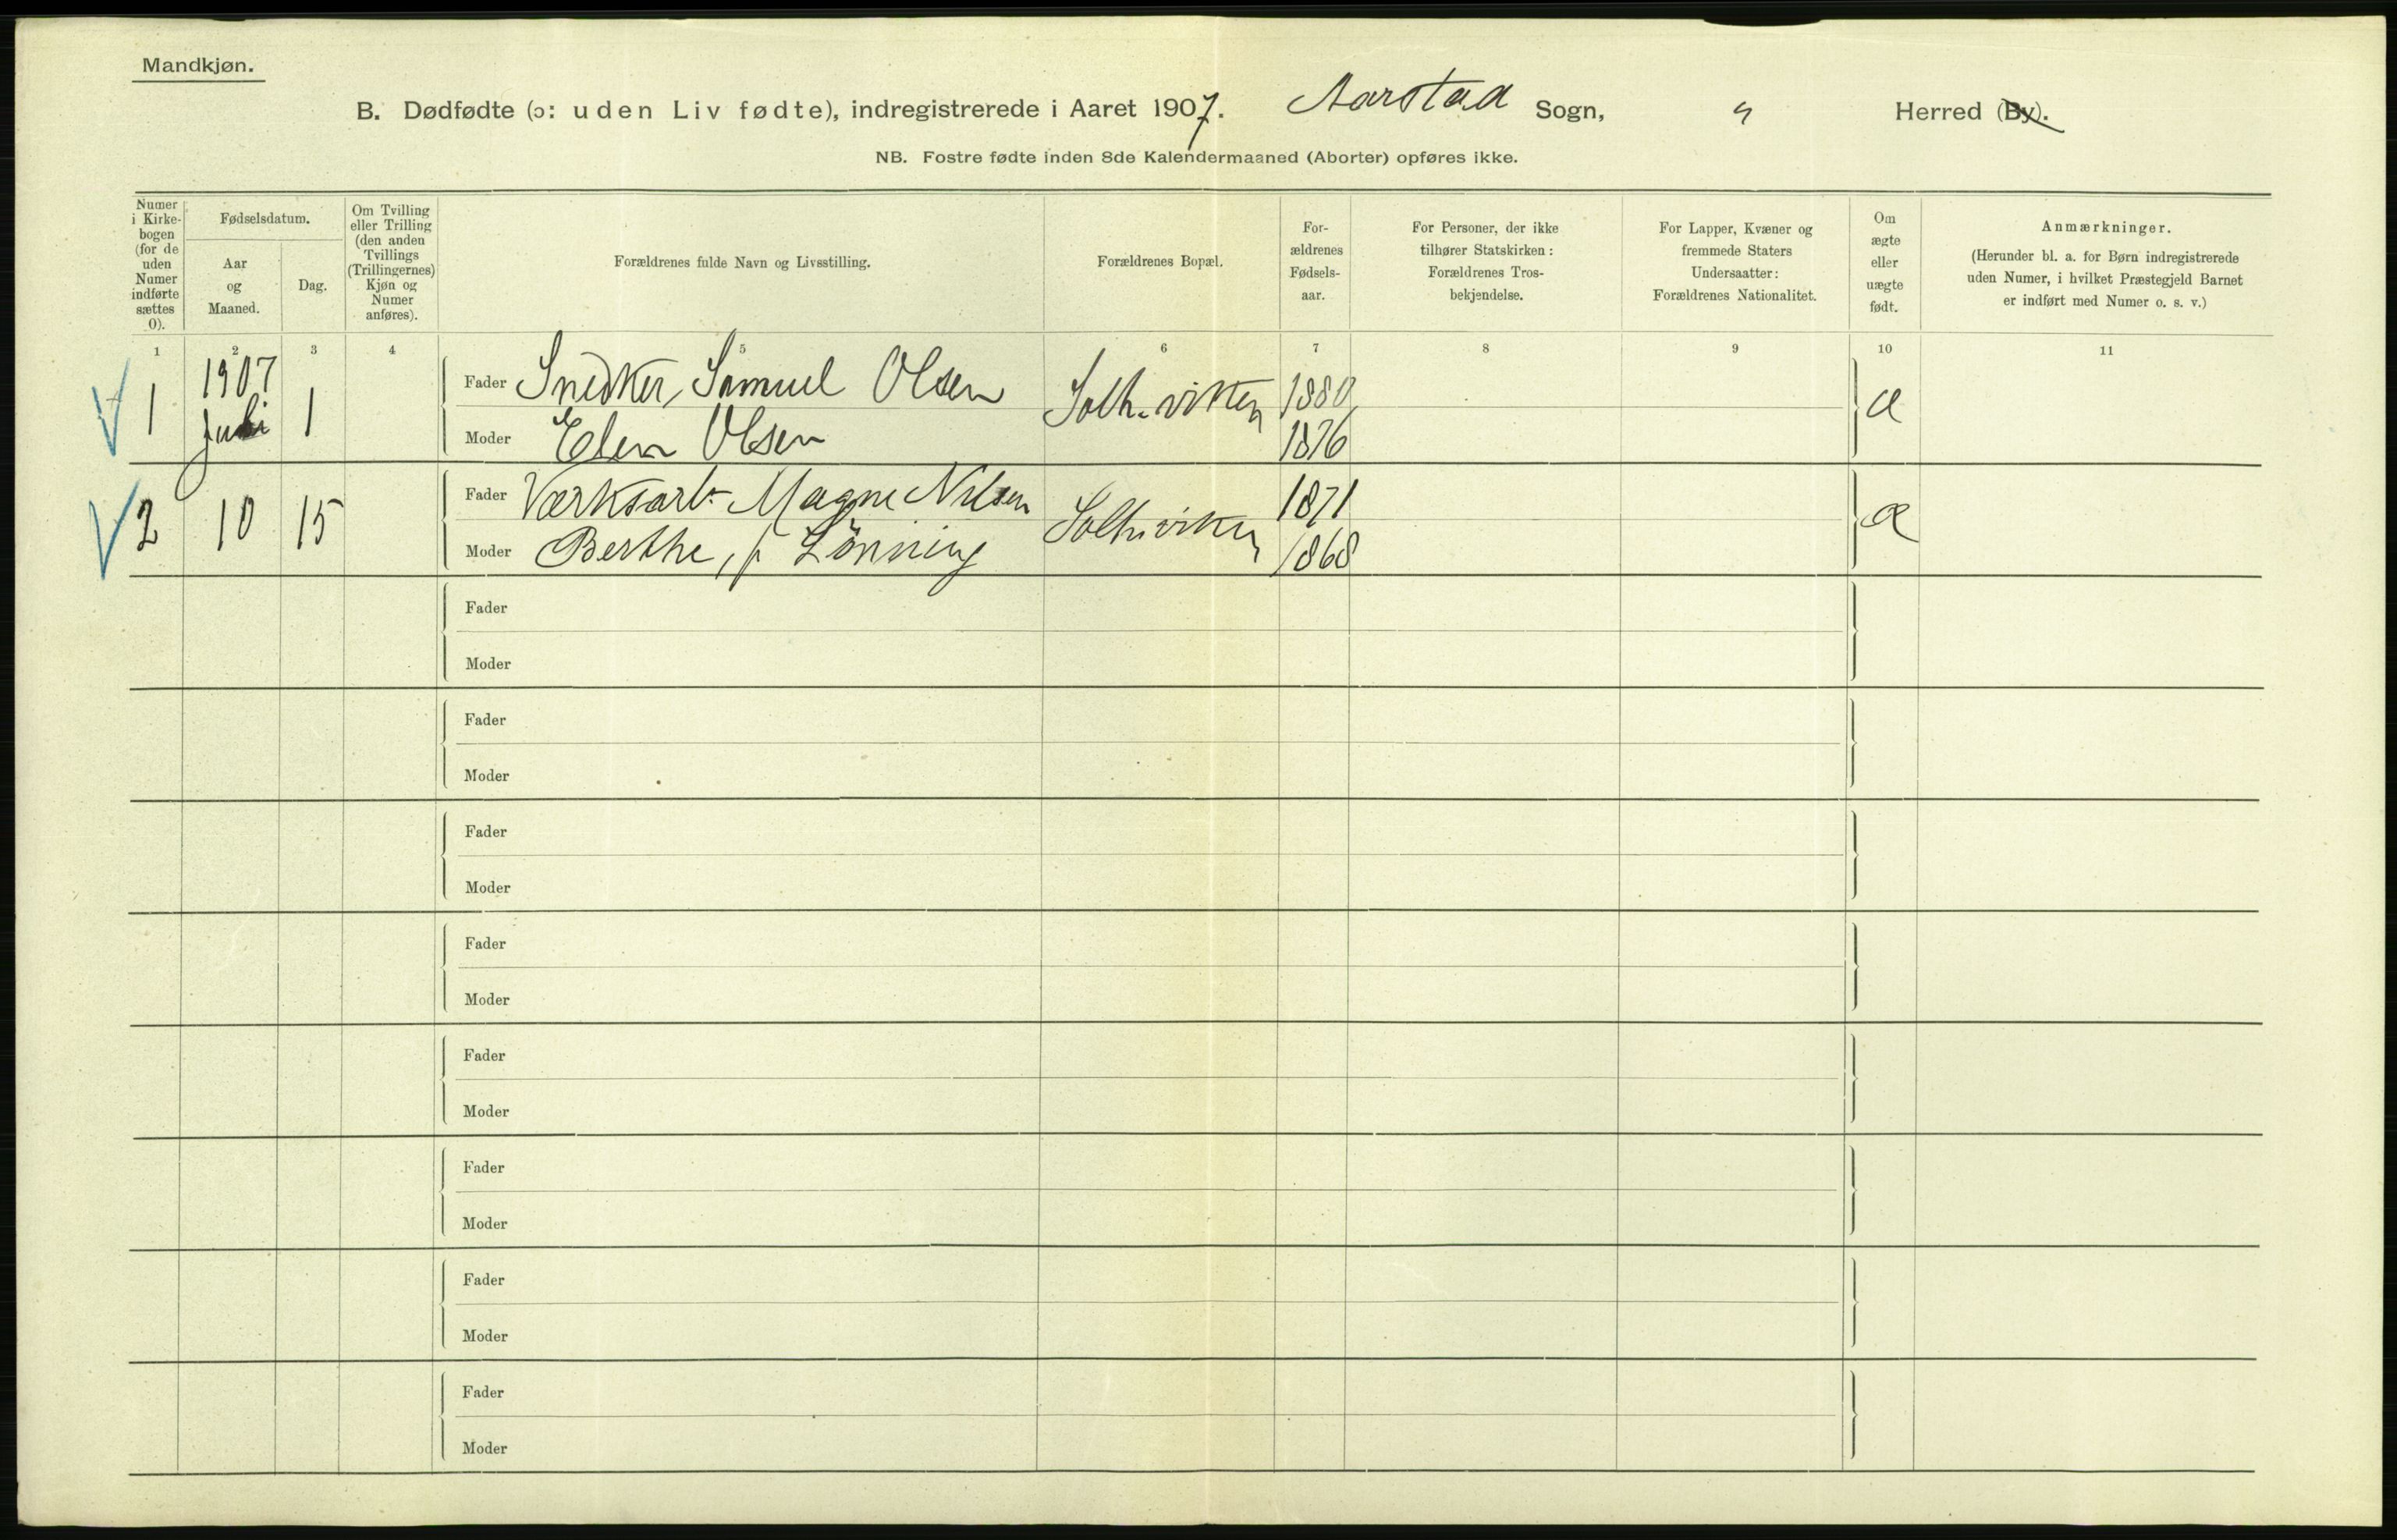 Mandkjøn.
B. Dødfødte (ɔ: uden Liv fødte), indregistrerede i Aaret 1907. Aarstad Sogn, " Herred (By).
NB. Fostre fødte inden 8de Kalendermaaned (Aborter) opføres ikke.
Numer i Kirkebogen (for de uden Numer indførte sættes 0).
Fødselsdatum.
Aar og Maaned.
Dag.
Om Tvilling eller Trilling (den anden Tvillings (Trillingernes) Kjøn og Numer anføres).
Forældrenes fulde Navn og Livsstilling.
Forældrenes Bopæl.
Forældrenes Fødselsaar.
For Personer, der ikke tilhører Statskirken: Forældrenes Trosbekjendelse.
For Lapper, Kvæner og fremmede Staters Undersaatter: Forældrenes Nationalitet.
Om ægte eller uægte født.
Anmærkninger.
(Herunder bl. a. for Børn indregistrerede uden Numer, i hvilket Præstegjeld Barnet er indført med Numer o. s. v.)
1 2 3 4 5 6 7 8 9 10 11
1 1907 Juli 1 Fader Snedker, Samuel Olsen Solh.viken 1880 æ
Moder Elen Olsen 1876
2 10 15 Fader Værksarb. Magne Nilsen Solh.viken 1871 æ
Moder Berthe, f. Lønning 1868
Fader
Moder
Fader
Moder
Fader
Moder
Fader
Moder
Fader
Moder
Fader
Moder
Fader
Moder
Fader
Moder